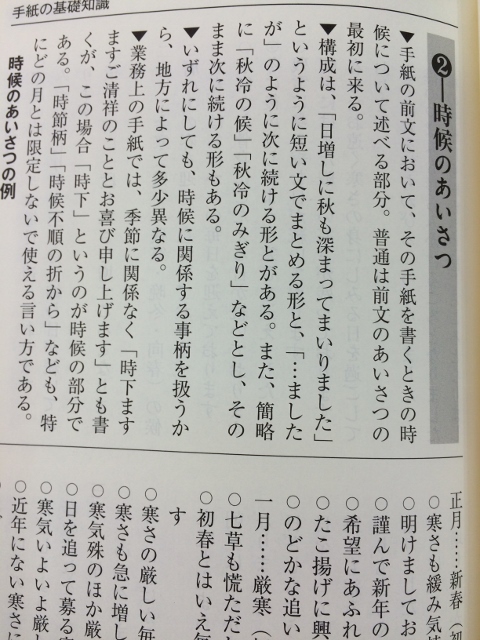 手紙の基礎知識
❷―時候のあいさつ
▼手紙の前文において、その手紙を書くときの時
候について述べる部分。普通は前文のあいさつの
最初に来る。
▼構成は、「日増しに秋も深まってまいりました」
というように短い文でまとめる形と、「…ました
が」のように次に続ける形とがある。また、簡略
に「秋冷の候」「秋冷のみぎり」などとし、その
まま次に続ける形もある。
▼いずれにしても、時候に関係する事柄を扱うか
ら、地方によって多少異なる。
▼業務上の手紙では、季節に関係なく「時下ます
ますご清祥のこととお喜び申し上げます」とも書
くが、この場合「時下」というのが時候の部分で
ある。「時節柄」「時候不順の折から」なども、特
にどの月とは限定しないで使える言い方である。
時候のあいさつの例
正月……新春（初
○寒さも緩み気持
○明けましてお
○謹んで新年の
○希望にあふれ
○たこ揚げに興
○のどかな追い
一月……厳寒（
○七草も慌ただし
○初春とはいえ毎
す
○寒さの厳しい毎
○寒さも急に増し
○寒気殊のほか厳
○日を追って募る寒
○寒気いよいよ厳
○近年にない寒さに